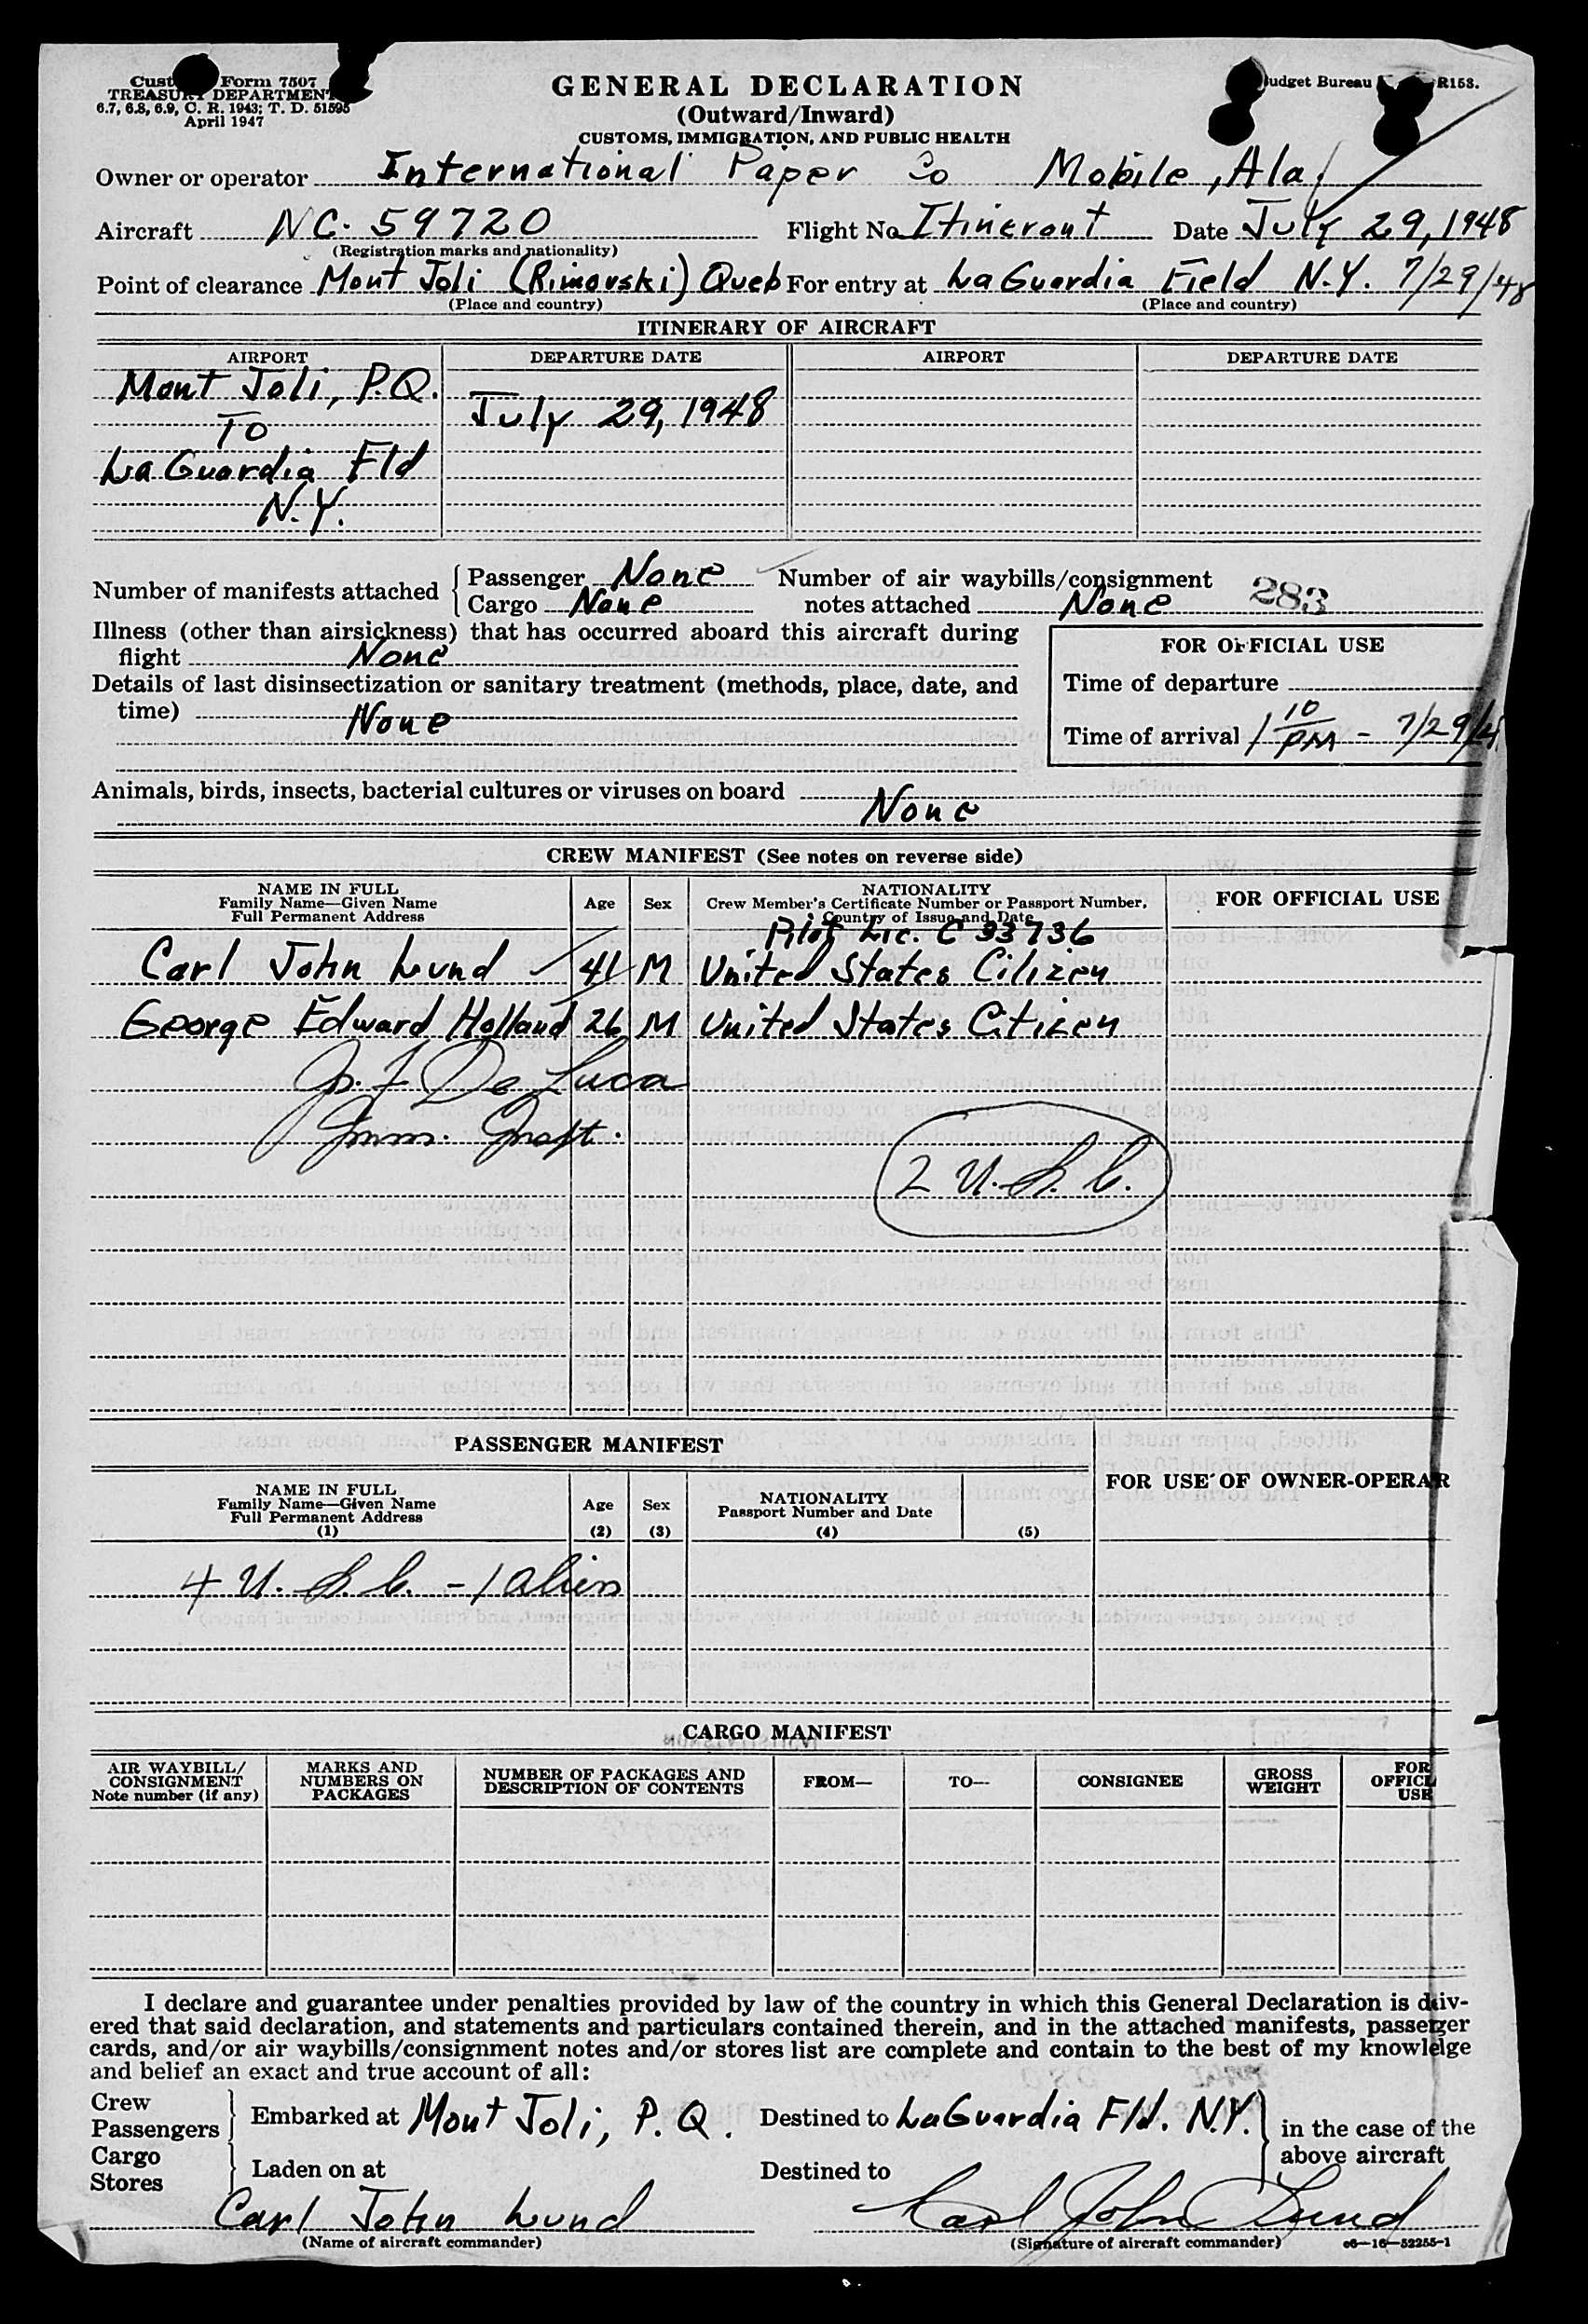 Customs Form 7507
TREASURY DEPARTMENT
6.7, 6.8, 6.9, C. R. 1943; T. D. 51595
April 1947
GENERAL DECLARATION
(Outward/Inward)
CUSTOMS, IMMIGRATION, AND PUBLIC HEALTH
Budget Bureau R153.
Owner or operator International Paper Co Mobile, Ala
Aircraft NC. 59720 Flight No. Itinerant Date July 29, 1948
(Registration marks and nationality)
Point of clearance Mont Joli (Rimovski) Queb For entry at LaGuardia Field N.Y. 7/29/48
(Place and country) (Place and country)
ITINERARY OF AIRCRAFT
AIRPORT DEPARTURE DATE AIRPORT DEPARTURE DATE
Mont Joli, P.Q.
July 29, 1948
TO
LaGuardia Fld
N.Y.
Number of manifests attached Passenger None Number of air waybills/consignment
Cargo None notes attached None 283
Illness (other than airsickness) that has occurred aboard this aircraft during
flight None
FOR OFFICIAL USE
Details of last disinsectization or sanitary treatment (methods, place, date, and
time) None
Time of departure
Time of arrival 1 10/PM - 7/29/4
Animals, birds, insects, bacterial cultures or viruses on board None
CREW MANIFEST (See notes on reverse side)
NAME IN FULL
Family Name—Given Name
Full Permanent Address
Age Sex
NATIONALITY
Crew Member's Certificate Number or Passport Number,
Country of Issue and Date
FOR OFFICIAL USE
Pilot Lic. C 33736
Carl John Lund 41 M United States Citizen
George Edward Holland 26 M United States Citizen
De Luca
Imm. Inspt.
2 U.S.C.
PASSENGER MANIFEST
FOR USE OF OWNER-OPERAR
NAME IN FULL
Family Name—Given Name
Full Permanent Address
(1)
Age
(2)
Sex
(3)
NATIONALITY
Passport Number and Date
(4) (5)
4 U.S.C. - 1 alien
CARGO MANIFEST
AIR WAYBILL/
CONSIGNMENT
Note number (if any)
MARKS AND
NUMBERS ON
PACKAGES
NUMBER OF PACKAGES AND
DESCRIPTION OF CONTENTS
FROM—
TO—
CONSIGNEE
GROSS
WEIGHT
FOR
OFFICI
USE
I declare and guarantee under penalties provided by law of the country in which this General Declaration is deliv-
ered that said declaration, and statements and particulars contained therein, and in the attached manifests, passenger
cards, and/or air waybills/consignment notes and/or stores list are complete and contain to the best of my knowledge
and belief an exact and true account of all:
Crew
Passengers
Embarked at Mont Joli, P.Q. Destined to LaGuardia Fld. N.Y.
in the case of the
above aircraft
Cargo
Stores
Laden on at Destined to
Carl John Lund Carl John Lund
(Name of aircraft commander) (Signature of aircraft commander) c6—16—52255-1